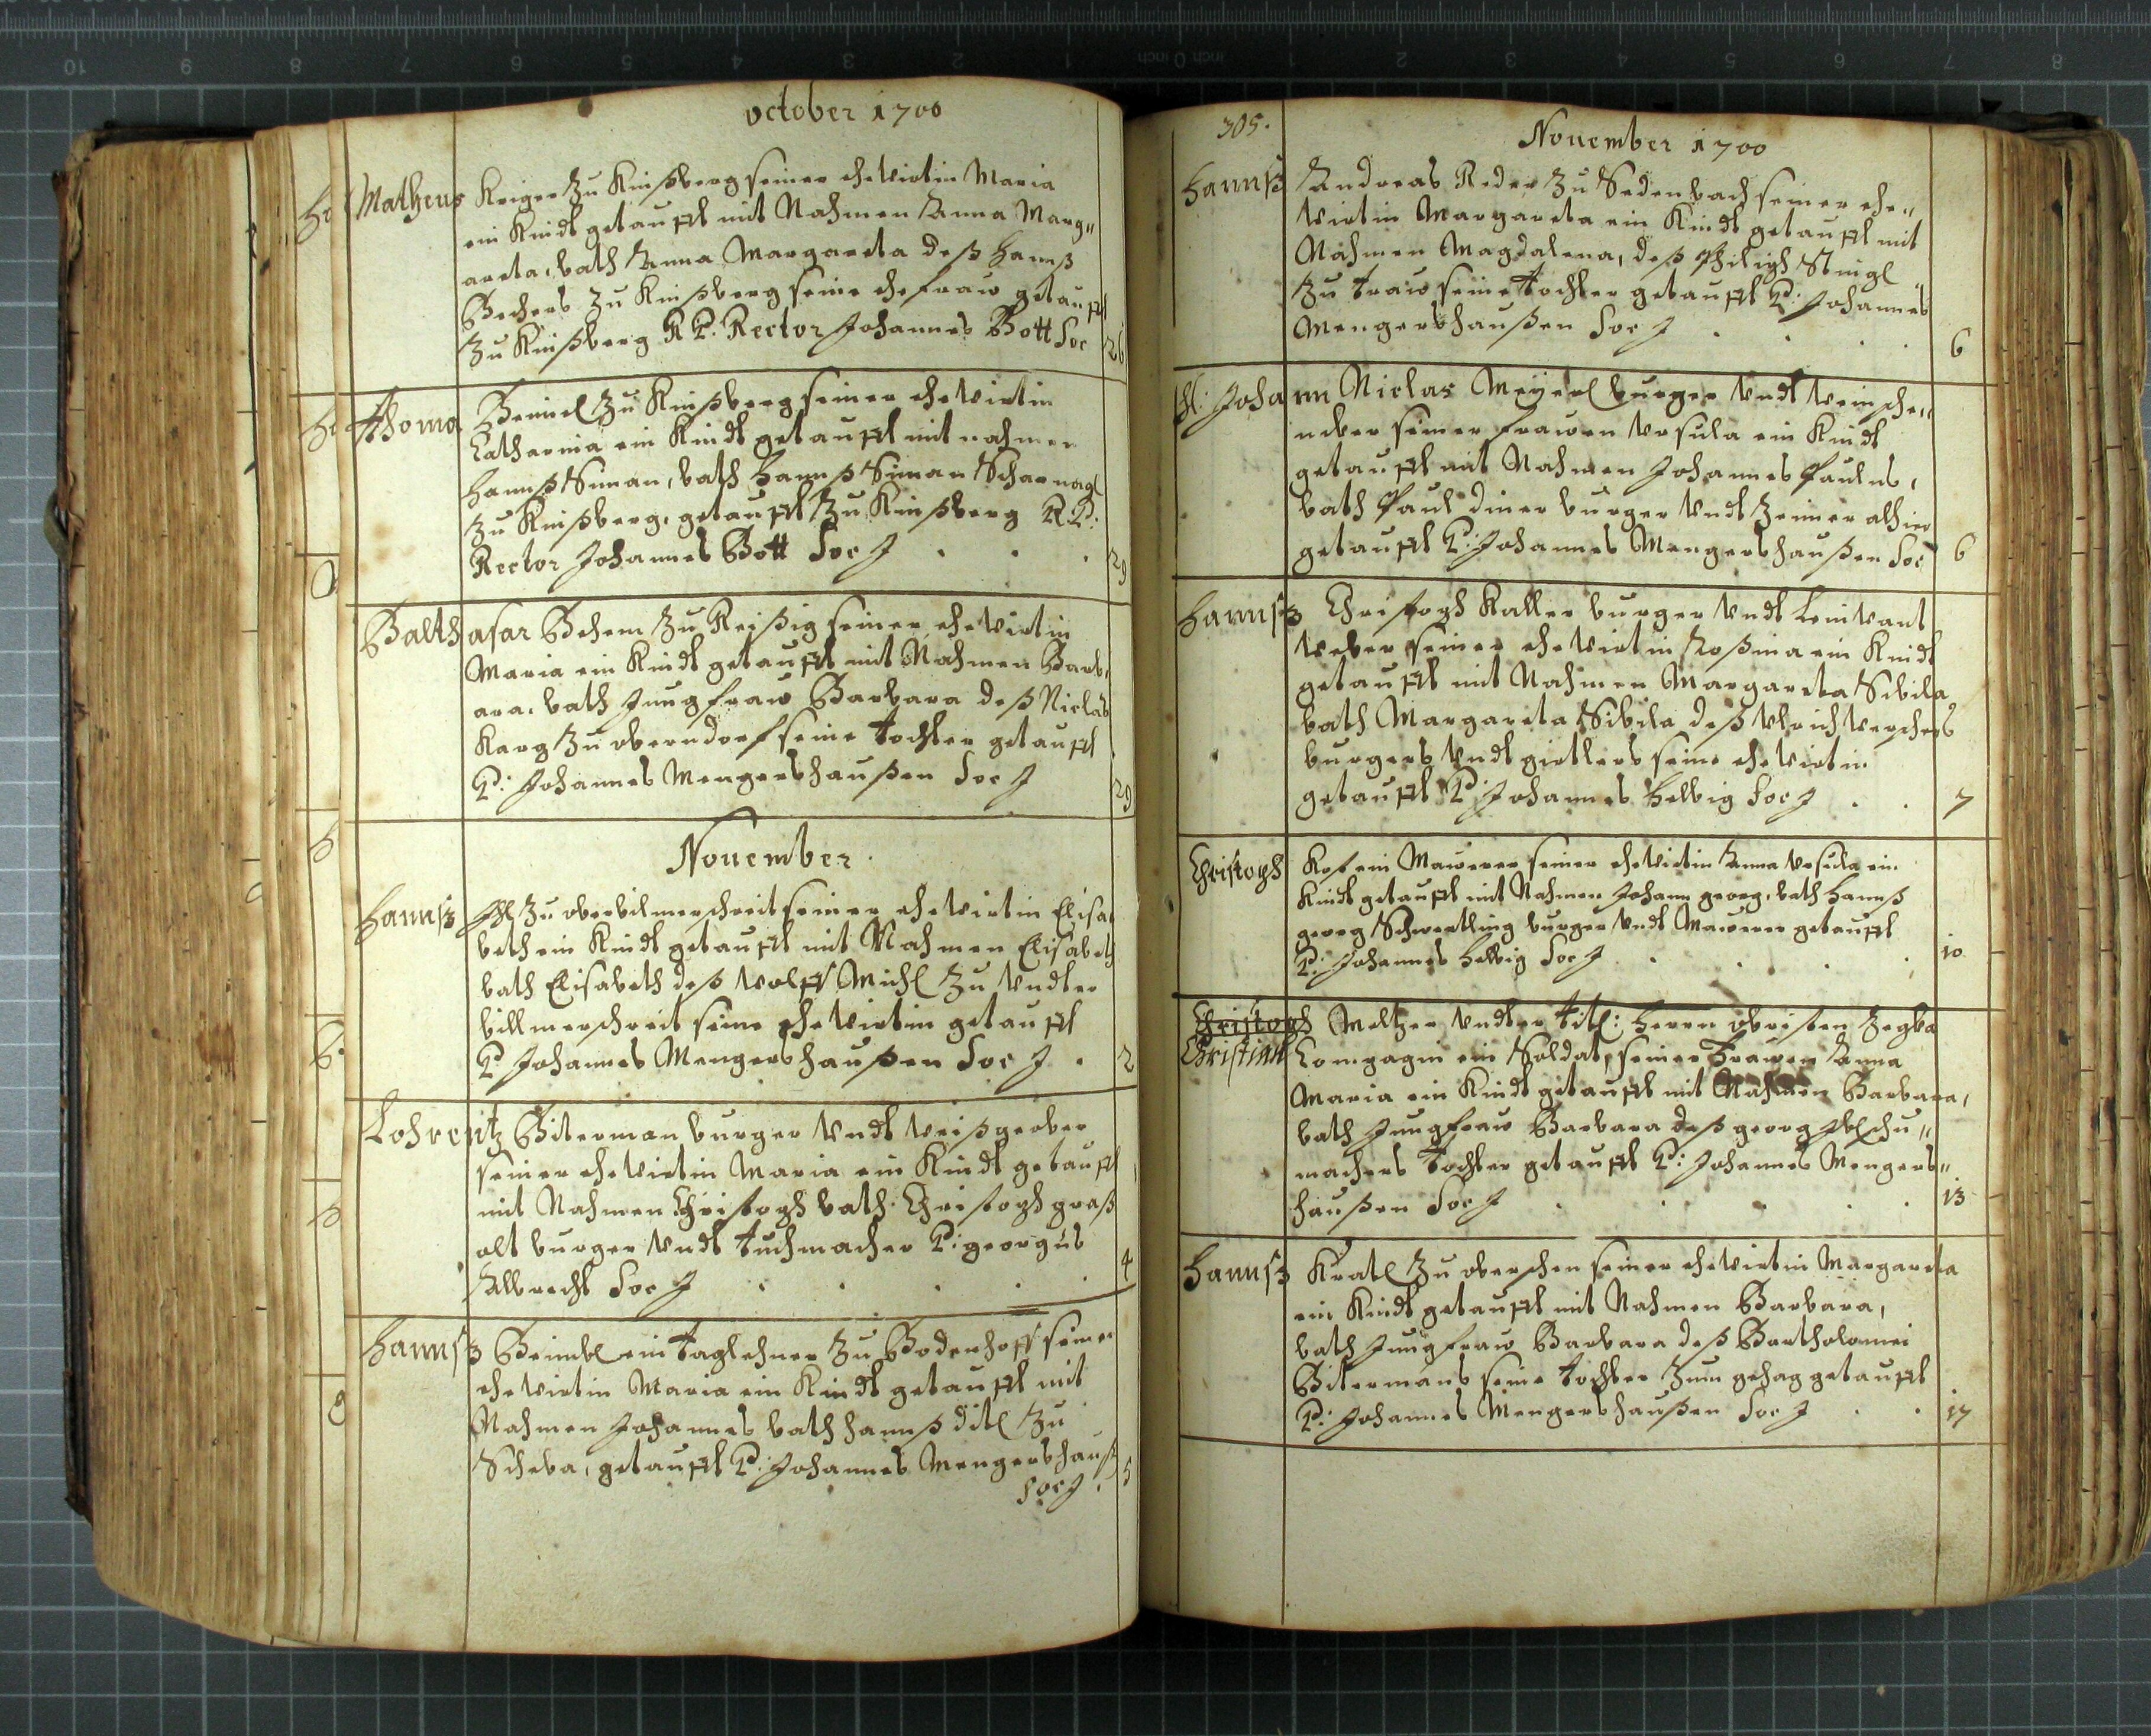 october 1700
Matheus Kriger zu Kinßberg seiner ehewirtin Maria
ein Kindt getaufft mit Nahmen Anna Marg„
areta, bath Anna Margareta deß Hannß
Bechers zu Kinßberg seine ehefraw getaufft
zu Kinßberg R P: Rector Johannes Bott Soc 26
Thoma zu Kinßberg seiner ehewirtin
Catharina ein Kindt getaufft mit nahmen
Hannß Siman, bath Hannß Siman Scharnagl
zu Kinßberg, getaufft zu Kinßberg R P:
Rector Johannes Bott Soc J . . . 29
Balthasar Behem zu Reißig seiner ehewirtin
Maria ein Kindt getaufft mit Nahmen Barb,
ara, bath Jungfraw Barbara deß Niclas
Karg zu oberndorf seine tochter getaufft
P: Johannes Mengershaußen Soc J 29
November.
Hannß zu seiner ehewirtin Elisa
beth ein Kindt getaufft mit Nahmen Elisabeth
bath Elisabeth deß Wolff Michl zu undter
seine ehewirtin getaufft
P Johannes Mengershaußen Soc J . 2
Lohrentz Biterman burger undt weißgerber
seiner ehewirtin Maria ein Kindt getaufft
mit Nahmen Christoph bath Christoph graß
alt burger undt tuchmacher P: georgius
Albrecht Soc J . . . . 4
Hannß ein taglehner zu Bodenhoff seiner
ehewirtin Maria ein Kindt getaufft mit
Nahmen Johannes bath hannß ditl zu
Scheba, getaufft P: Johannes Mengershauß
Soc J . 5
305.
November 1700
Hannß Andreas Reder zu Sedenbach seiner ehe„
wirtin Margareta ein Kindt getaufft mit
Nahmen Magdalena, deß Philiph Stingl
zu traw seine tochter getaufft P: Johannes
Mengershaußen Soc J . . . . 6
Johann Niclas Meyerl burger undt
seiner frawen Ursula ein Kindt
getaufft mit Nahmen Johannes Paulus,
bath Paul diner burger undt Zeiner alhier
getaufft P: Johannes Mengershaußen Soc 6
Hannß Christoph Kaller burger undt Leinwant
weber seiner ehewirtin Roßina ein Kindt
getaufft mit Nahmen Margareta Sibila
bath Margareta Sibila deß Ulrich
burgers undt girtlers seine ehewirtin
getaufft P: Johannes Helbig Soc J . . 7
Christoph ein Maurer seiner ehewirtin Anna Ursula ein
Kindt getaufft mit Nahmen Johann georg, bath Hannß
georg Schwertling burger undt Maurer getaufft
P: Johannes Helbig Soc J . . . . 10
Christoph Meltzer undter titl: Herrn obristen
Christian Compagni ein Soldat, seiner Frawen Anna
Maria ein Kindt getaufft mit Nahmen Barbara,
bath Jungfraw Barbara deß georg schu„
machers tochter getaufft P: Johannes Mengers„
haußen Soc J . . . . . 13
Hannß Kratl zu seiner ehewirtin Margareta
ein Kindt getaufft mit Nahmen Barbara,
bath Jungfraw Barbara deß Bartholomei
Bitermans seine tochter zum gehag getaufft
P: Johannes Mengershaußen Soc J . . 17